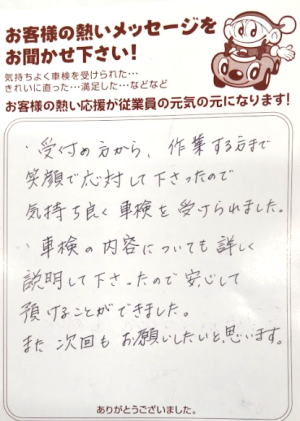 お客様の熱いメッセージを
お聞かせ下さい!
気持ちよく車検を受けられた…
きれいに直った…満足した…などなど
お客様の熱い応援が従業員の元気の元になります!
・受付の方から、作業する方まで
笑顔で応対して下さったので
気持ち良く車検を受けられました。
・車検の内容についても詳しく
説明して下さったので安心して
預けることができました。
また次回もお願いしたいと思います。
ありがとうございました。